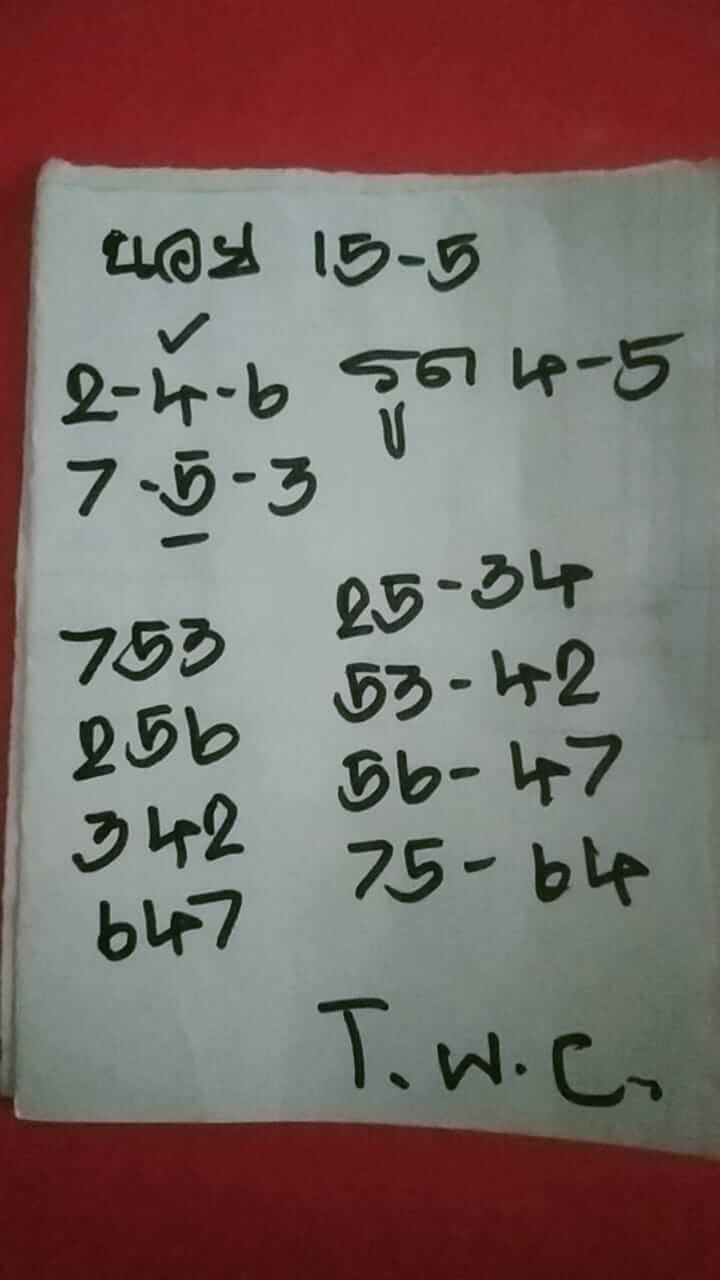 นอย 15-5
2-4-6 รูด 4-5
7-5-3
753 25-34
256 53-42
342 56-47
647 75-64
T.W.C.